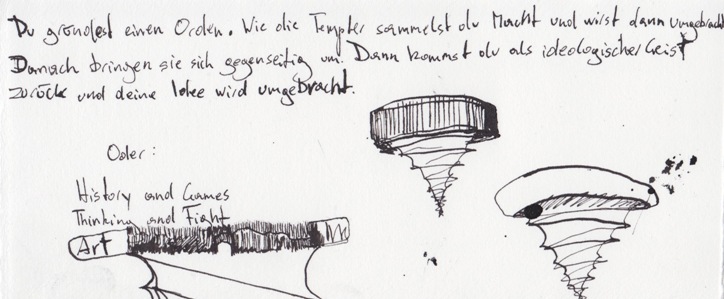 Du gründest einen Orden. Wie die Templer sammelst du Macht und wirst dann umgebracht
Danach bringen sie sich gegenseitig um. Dann kommst du als ideologischer Geist
zurück und deine Idee wird umgebracht.
Oder:
History and Games
Thinking and Fight
Art